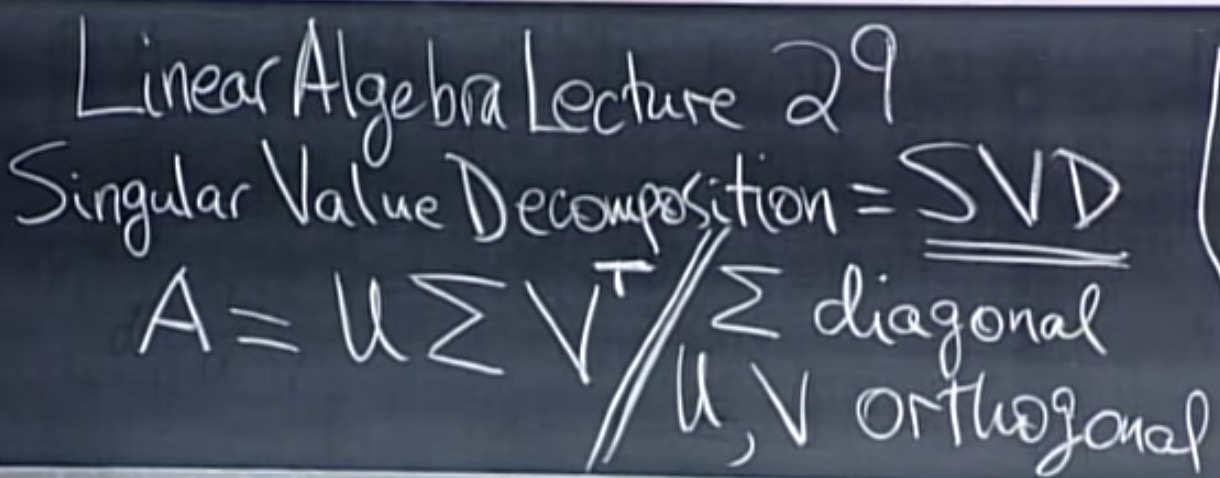 Linear Algebra Lecture 29
Singular Value Decomposition = SVD
A = U Σ V^T // Σ diagonal
U, V orthogonal